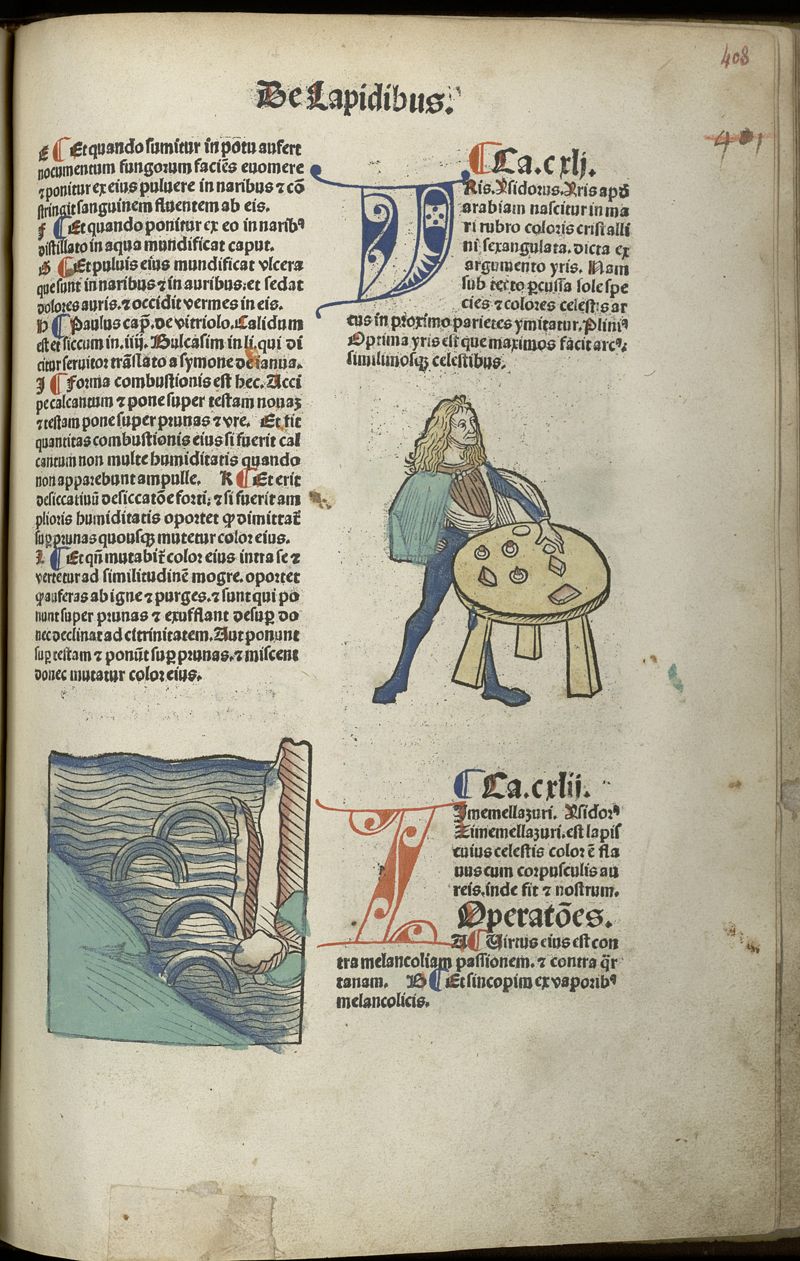 408
401
De Lapidibus.
E ¶ Et quando sumitur in potu aufert
nocumentum fungorum faciēs euomere
⁊ ponitur ex eius puluere in naribus ⁊ cō
stringit sanguinem fluentem ab eis.
F ¶ Et quando ponitur ex eo in naribꝰ
distillato in aqua mundificat caput.
G ¶ Et puluis eius mundificat vlcera
que sunt in naribus ⁊ in auribus: et sedat
dolores auris. ⁊ occidit vermes in eis.
H ¶ Paulus cap̄. de vitriolo. Calidum
est et siccum in .iiij. Bulcasim in li. qui di
citur seruitor trāslato a symone de ianua.
J ¶ Forma combustionis est hec. Acci
pe calcantum ⁊ pone super testam nouaz
⁊ testam pone super prunas ⁊ vre. Et sit
quantitas combustionis eius si fuerit cal
cantum non multe humiditatis quando
non apparebunt ampulle. K ¶ Et erit
desiccatiuū desiccatōe forti: ⁊ si fuerit am
plioris humiditatis oportet ꝙ dimittat̄
suꝑ prunas quousqꝫ mutetur color eius.
L ¶ Et qn̄ mutabit̄ color eius intra se ⁊
vertetur ad similitudinē mogre. oportet
ꝙ auferas ab igne ⁊ purges. ⁊ sunt qui po
nunt super prunas ⁊ exufflant desuꝑ do
nec declinat ad citrinitatem. Aut ponunt
suꝑ testam ⁊ ponūt suꝑ prunas. ⁊ miscent
donec mutatur color eius.
¶ Ca. cxlj.
YRis. Ysidorus. Yris apđ
arabiam nascitur in ma
ri rubro coloris cristalli
ni sexangulata. dicta ex
argumento yris. Nam
sub tecto ꝑcussa sole spe
cies ⁊ colores celestis ar
cus in proximo parietes ymitatur. Pliniꝰ
Optima yris est que maximos facit arcꝰ:
simillimosqꝫ celestibus.
¶ Ca. cxlij.
ZJmemellazuri. Ysidorꝰ
Zimemellazuri. est lapis
cuius celestis color ē fla
uus cum corpusculis au
reis. inde fit ⁊ nostrum.
Operatōes.
A ¶ Uirtus eius est con
tra melancoliam passionem. ⁊ contra q̄r
tanam. B ¶ Et sincopim ex vaporibꝰ
melancolicis.